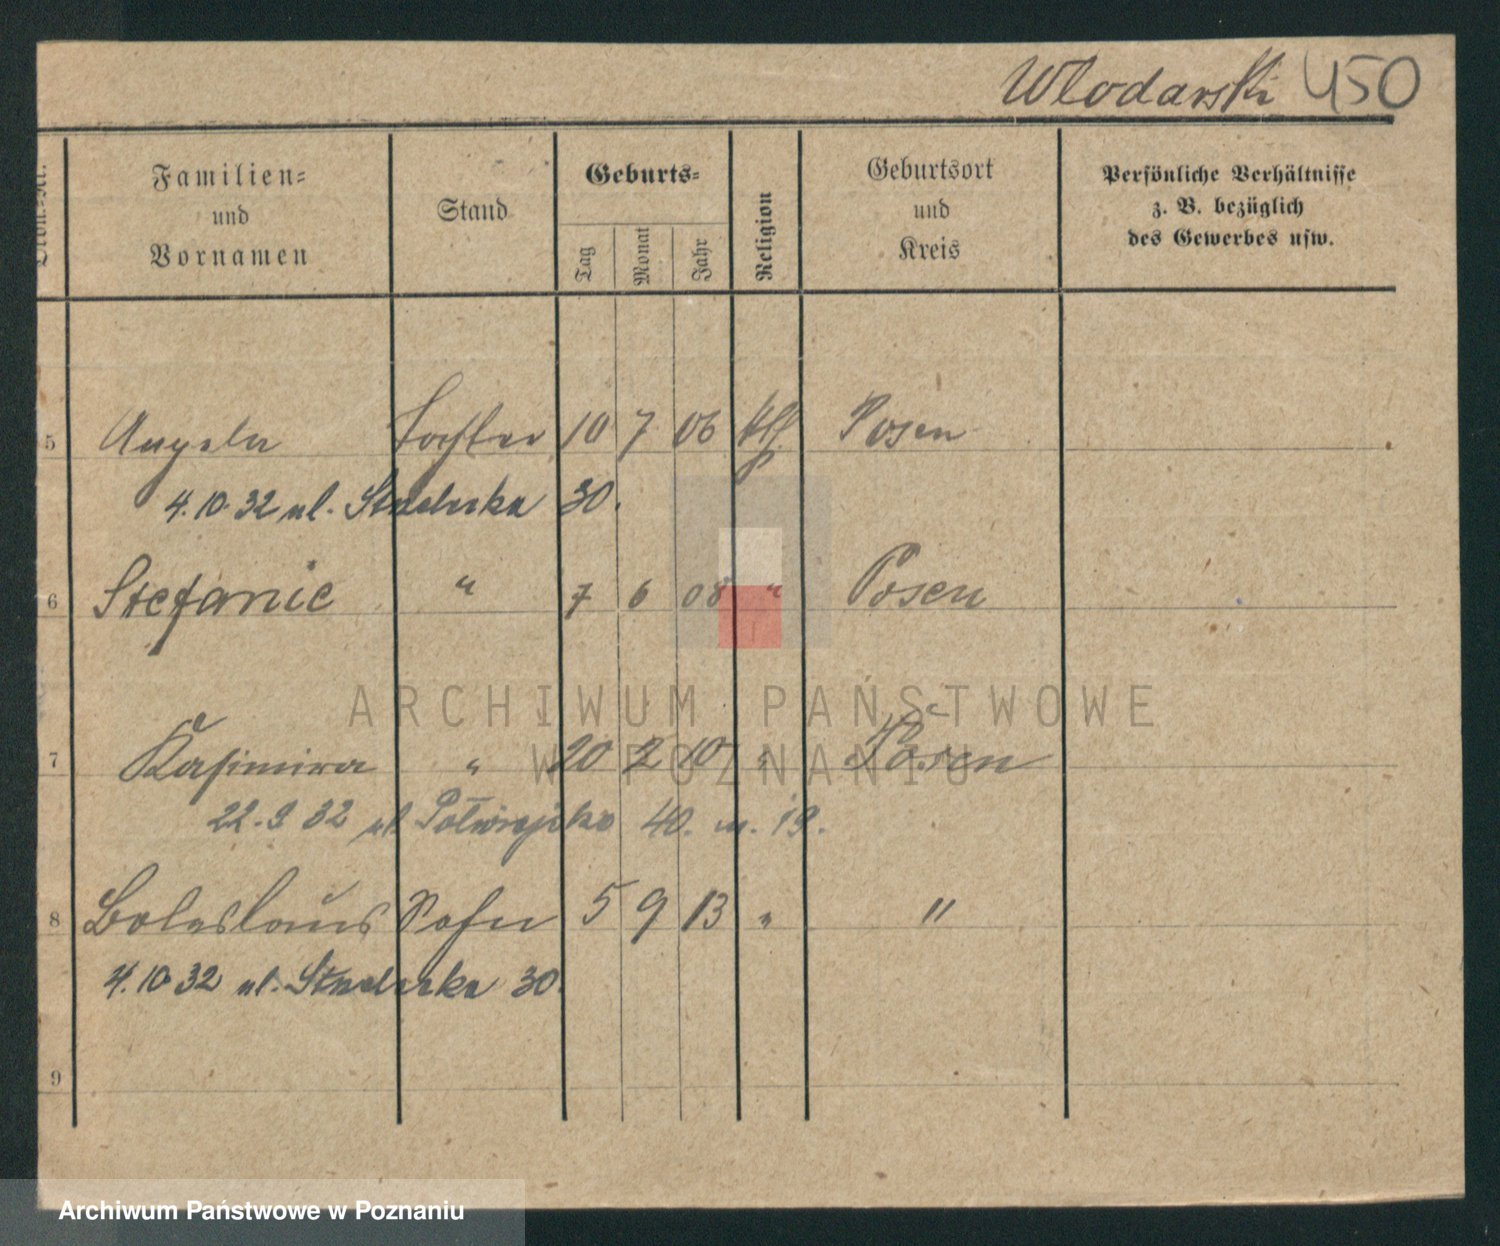 Wlodarski 450
Ordn.-Nr.
Familien-
und
Vornamen
Stand
Geburts-
Tag
Monat
Jahr
Religion
Geburtsort
und
Kreis
Persönliche Verhältnisse
z. B. bezüglich
des Gewerbes usw.
5 Angela Tochter 10 7 06 kth Posen
4.10.32 ul. 30.
6 Stefanie " 7 6 08 " Posen
7 Kasimira " 20 2 10 " Posen
22.9.32 ul. Półwiejska 40. m. 19.
8 Boleslaus Sohn 5 9 13 " "
4.10.32 ul. 30.
9
ARCHIWUM PAŃSTWOWE
W POZNANIU
Archiwum Państwowe w Poznaniu